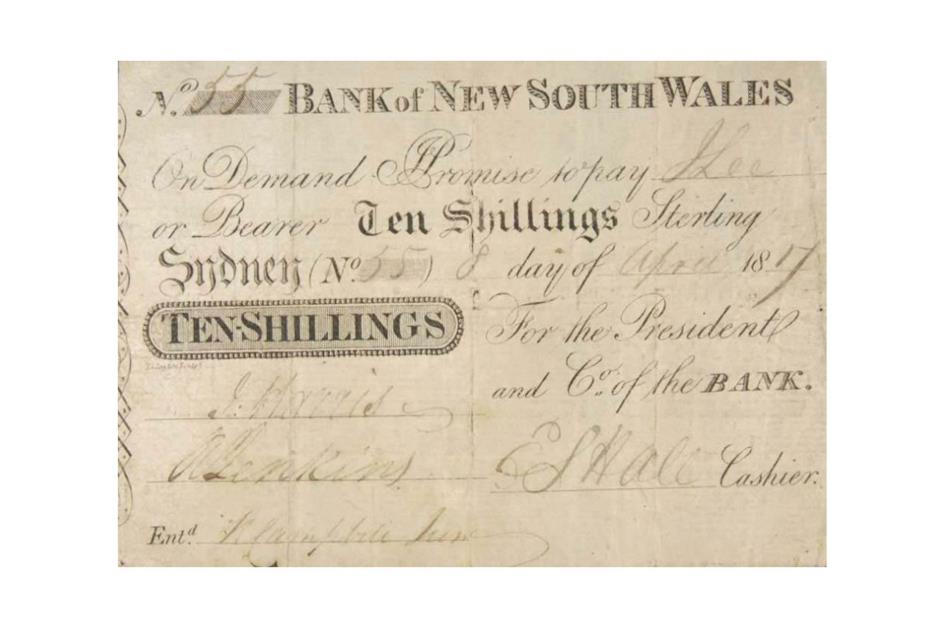 No. 55 BANK of NEW SOUTH WALES
On Demand I Promise to pay J Lee
or Bearer Ten Shillings Sterling
Sydney (No. 55) 8 day of April 1817
TEN-SHILLINGS For the President
and Co. of the BANK.
J. Harris
R Jenkins
E S Hall Cashier.
Entd.